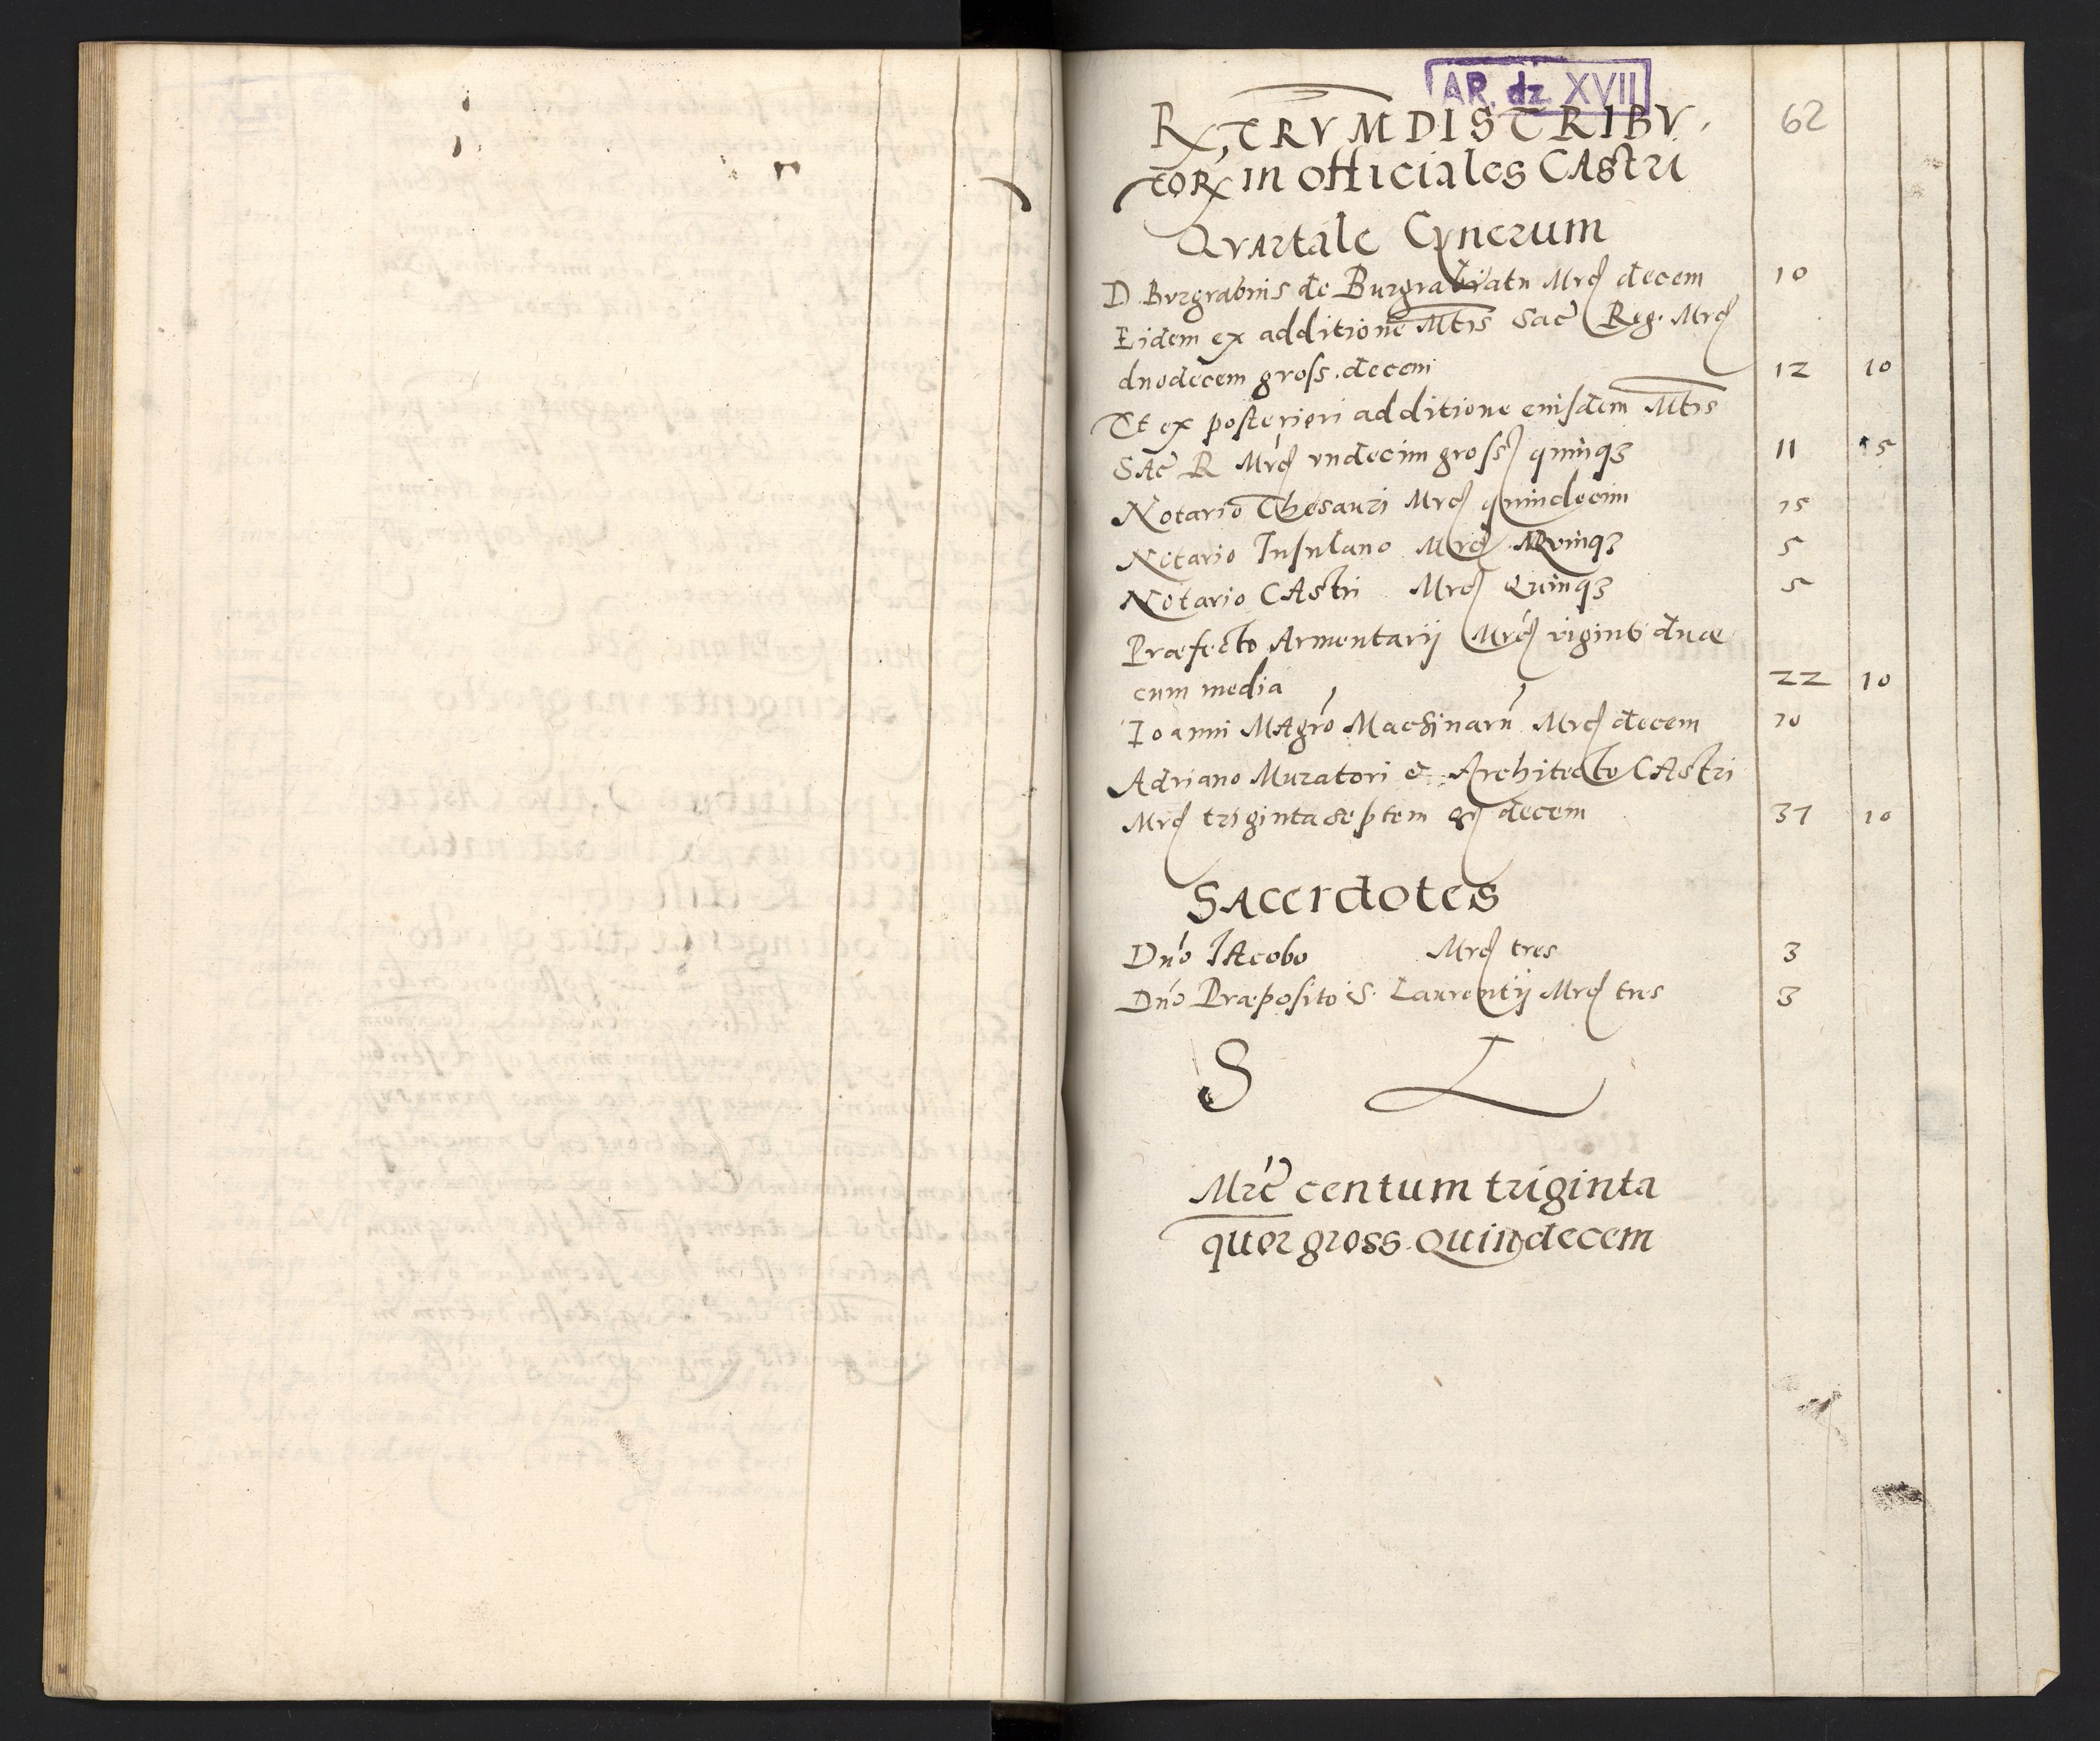 AR. dz. XVII
62
R, TRVM DISTRIBV,
TOR, in officiales CAstri
QVArtale Cynerum
D. Burgrabius de Burgrabiatu Mrc decem 10
Eidem ex additione Mtis Sac Reg. Mrc
duodecem gross. decem 12 10
Et ex posteriori additione eiusdem Mtis
SAc R Mrc vndecim gross quinqꝫ 11 5
Notario Thesauri Mrc quindecim 15
Notario Insulano Mrc Qvinqꝫ 5
Notario CAstri Mrc Quinqꝫ 5
Præfecto Armentarij Mrc viginti duæ
cum media 22 10
Ioanni MAgro Machinaru Mrc decem 10
Adriano Muratori & Architecto CAstri
Mrc triginta septem gr decem 37 10
SAcerdotes
Dno IAcobo Mrc tres 3
Dno Præposito S. Laurentij Mrc tres 3
S L
Mrc centum triginta
quor gross. Quindecem